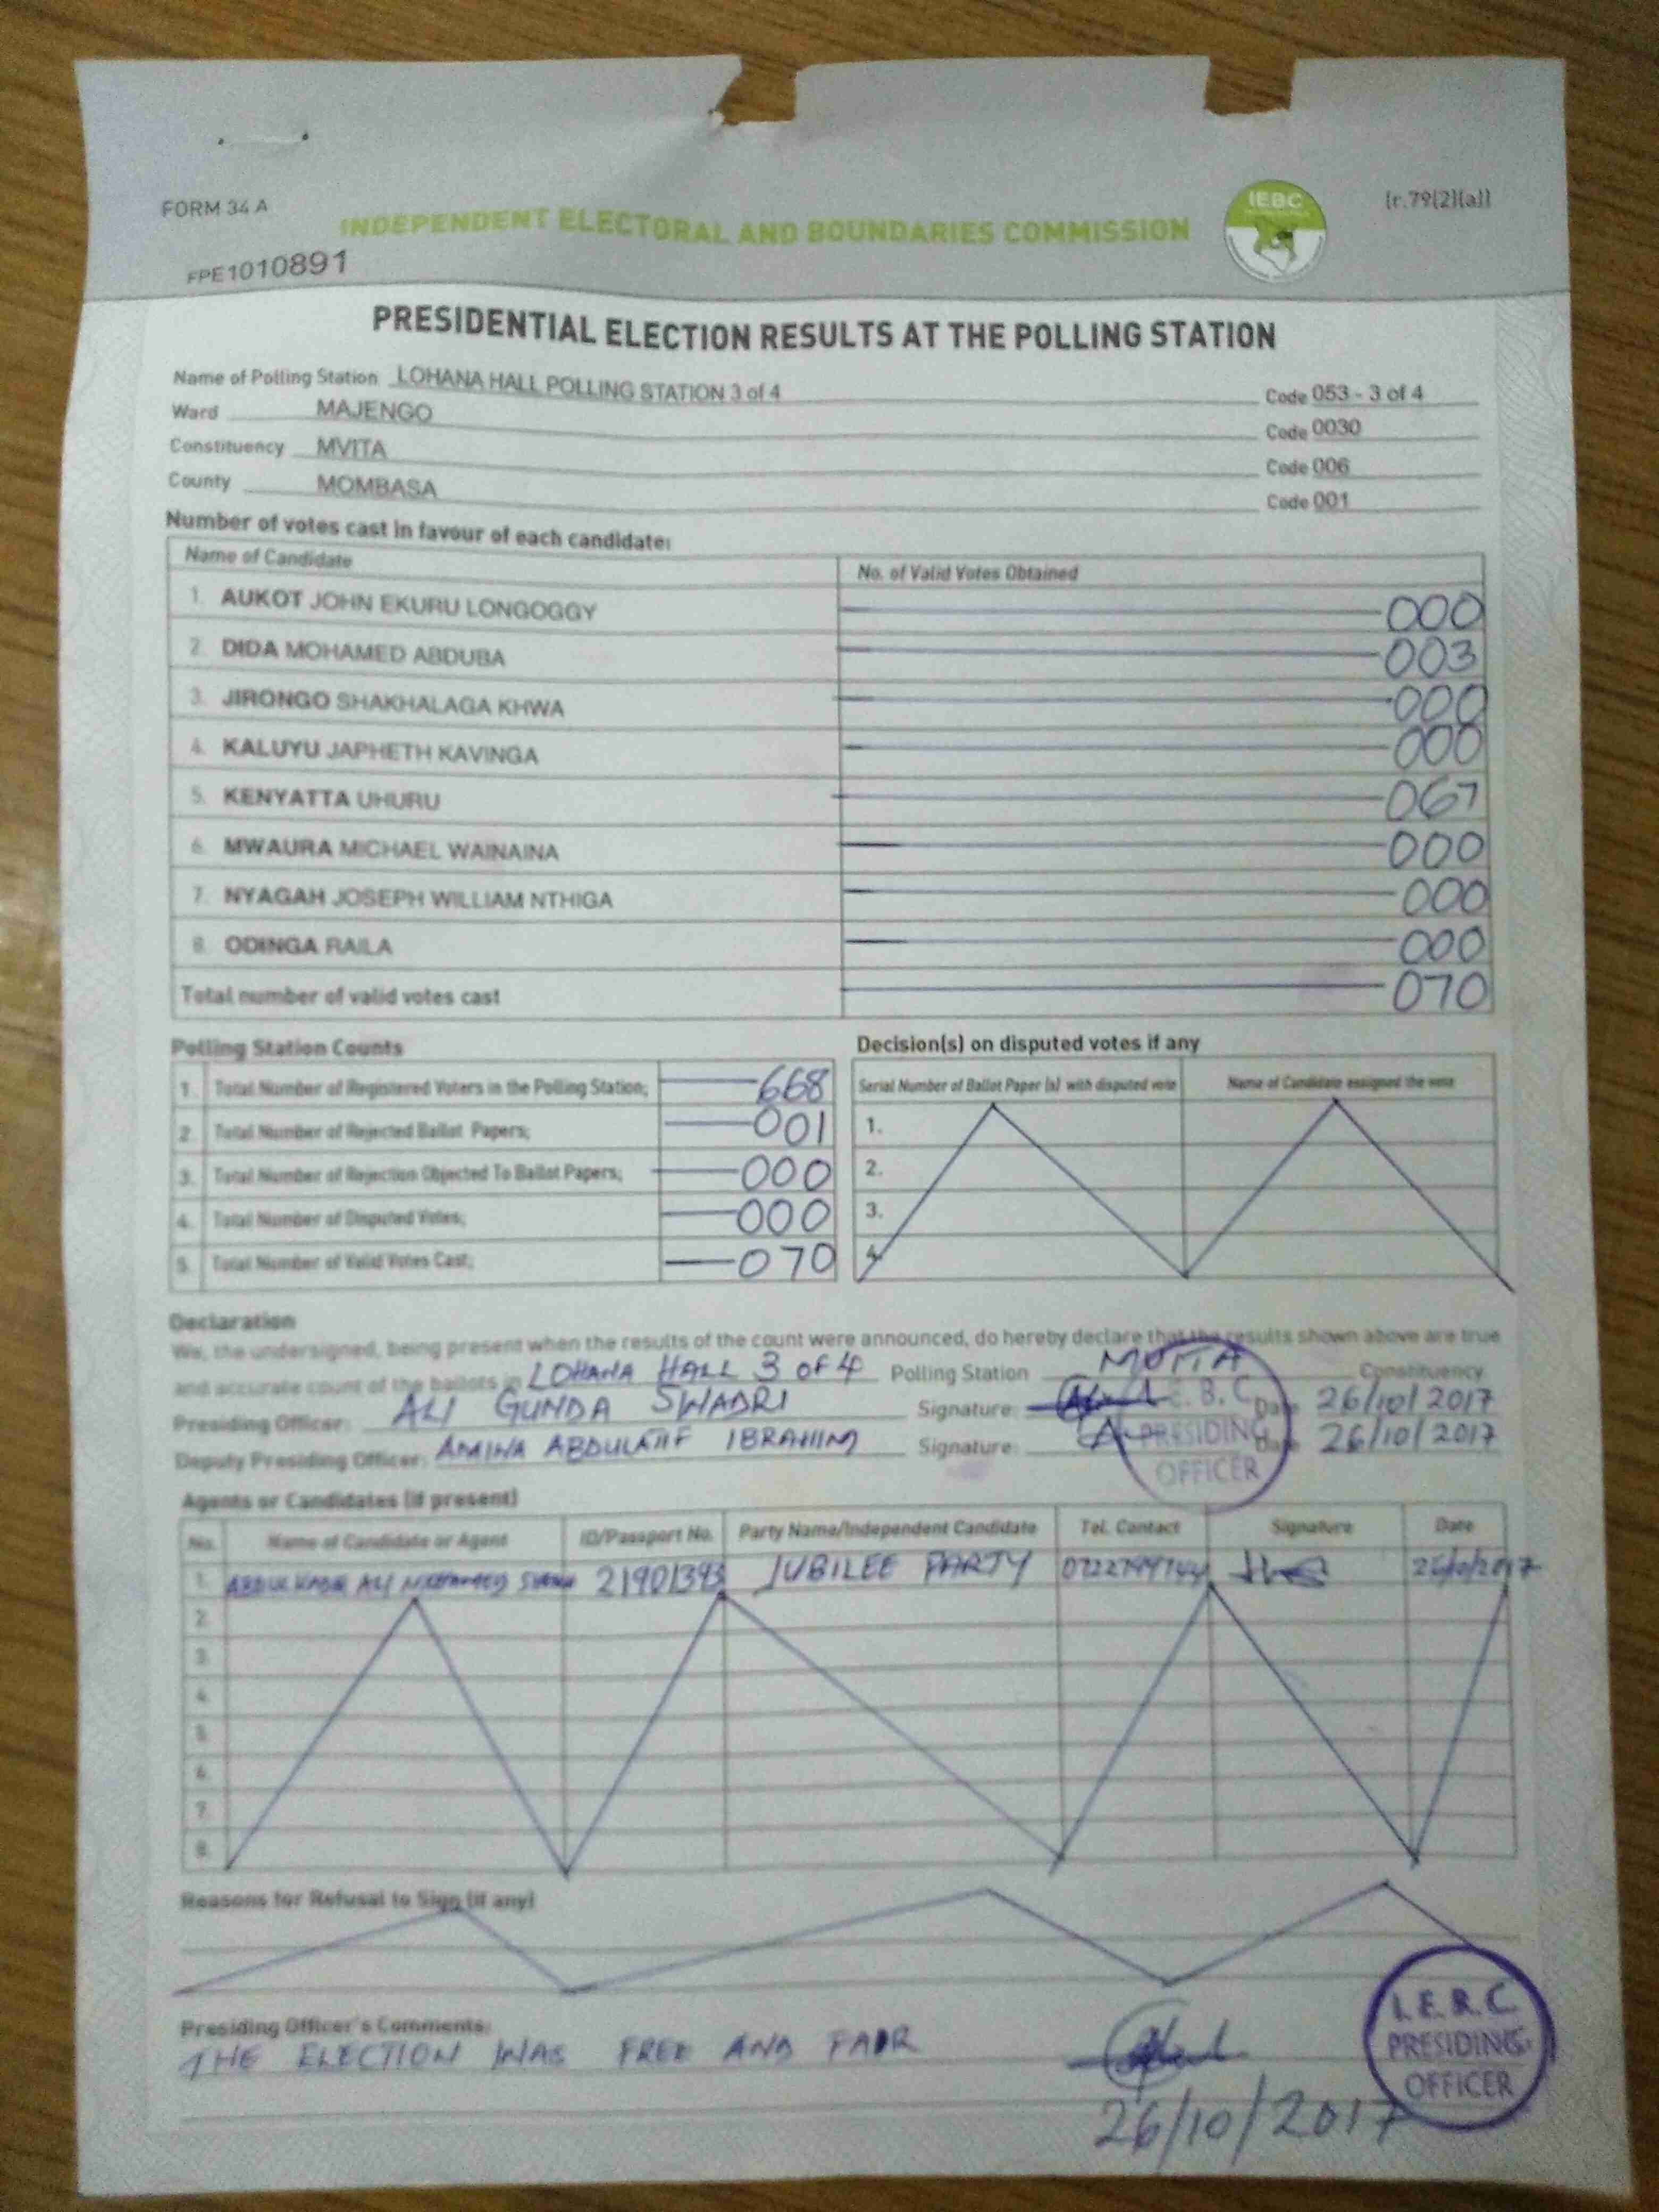 FORM 34 A
(r.79(2)(a))
INDEPENDENT ELECTORAL AND BOUNDARIES COMMISSION
IEBC
FPE1010891
PRESIDENTIAL ELECTION RESULTS AT THE POLLING STATION
Name of Polling Station LOHANA HALL POLLING STATION 3 of 4 Code 053 - 3 of 4
Ward MAJENGO Code 0030
Constituency MVITA Code 006
County MOMBASA Code 001
Number of votes cast in favour of each candidate:
Name of Candidate No. of Valid Votes Obtained
1. AUKOT JOHN EKURU LONGOGGY 000
2. DIDA MOHAMED ABDUBA 003
3. JIRONGO SHAKHALAGA KHWA 000
4. KALUYU JAPHETH KAVINGA 000
5. KENYATTA UHURU 067
6. MWAURA MICHAEL WAINAINA 000
7. NYAGAH JOSEPH WILLIAM NTHIGA 000
8. ODINGA RAILA 000
Total number of valid votes cast 070
Polling Station Counts
1. Total Number of Registered Voters in the Polling Station; 668
2. Total Number of Rejected Ballot Papers; 001
3. Total Number of Rejection Objected To Ballot Papers; 000
4. Total Number of Disputed Votes; 000
5. Total Number of Valid Votes Cast; 070
Decision(s) on disputed votes if any
Serial Number of Ballot Paper (s) with disputed vote Name of Candidate assigned the vote
1.
2.
3.
4.
Declaration
We, the undersigned, being present when the results of the count were announced, do hereby declare that the results shown above are true
and accurate count of the ballots in LOHANA HALL 3 OF 4 Polling Station MVITA Constituency
Presiding Officer: ALI GUNDA SWABRI Signature: Date 26/10/2017
Deputy Presiding Officer: AMINA ABDULATIF IBRAHIM Signature: Date 26/10/2017
I.E.B.C
PRESIDING
OFFICER
Agents or Candidates (if present)
No. Name of Candidate or Agent ID/Passport No. Party Name/Independent Candidate Tel. Contact Signature Date
1. ALI 21901393 JUBILEE PARTY 26/10/2017
2.
3.
4.
5.
6.
7.
8.
Reasons for Refusal to Sign (if any)
Presiding Officer's Comments:
THE ELECTION WAS FREE AND FAIR
26/10/2017
I.E.B.C
PRESIDING
OFFICER